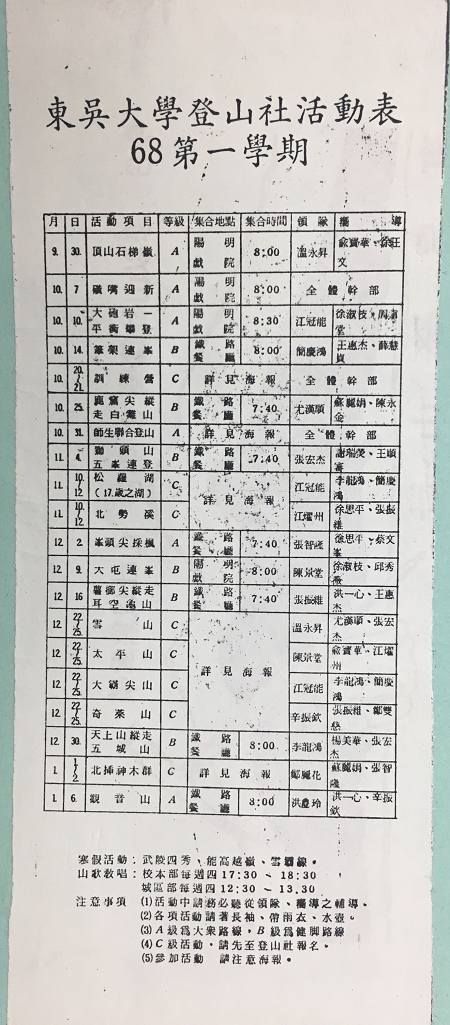 東吳大學登山社活動表
68第一學期
月 日 活動項目 等級 集合地點 集合時間 領隊 嚮導
9. 30. 頂山石梯嶺 A 陽明戲院 8:00 溫永昇
10. 7 磺嘴迎新 A 陽明戲院 8:00 全體幹部
10. 10. 大砲岩－平衡攀登 A 陽明戲院 8:30 江冠能 徐淑枝、
10. 14. 筆架連峯 B 鐵路餐廳 8:00 簡慶鴻 王惠杰、薛慧貞
10. 20/21. 訓練營 C 詳見海報 全體幹部
10. 25. 鹿窟尖縱走白雞山 B 鐵路餐廳 7:40 尤漢順 蘇麗娟、陳永金
10. 31. 師生聯合登山 A 詳見海報 全體幹部
11. 4. 獅頭山五峯連登 B 鐵路餐廳 7:40 張宏杰 謝瑞熒、王順
11. 10/12 松蘿湖(17歲之湖) C 詳見海報 江冠能 李龍鴻、簡慶鴻
11. 10/12 北勢溪 C 江燿州 徐思平、張振雄
12 2. 峯頭尖採楓 A 鐵路餐廳 7:40 張智隆 徐思平、蔡文峯
12 9. 大屯連峯 B 陽明戲院 8:00 陳景堂 徐淑枝、邱秀
12 16 薯榔尖縱走耳空龜山 B 鐵路餐廳 7:40 張振雄 洪一心、王惠杰
12. 22/25. 雪山 C 詳見海報 溫永昇 尤漢順、張宏杰
12 22/25. 太平山 C 陳景堂 江燿州
12 22/25. 大霸尖山 C 江冠能 李龍鴻、簡慶鴻
12 22/25. 奇萊山 C 辛振欽 張振雄、鄒雙慈
12. 30. 天上山縱走五城山 B 鐵路餐廳 8:00 李龍鴻 楊美華、張宏杰
1. 1/2 北插神木群 C 詳見海報 鄭麗花 蘇麗娟、張智隆
1. 6. 觀音山 A 鐵路餐廳 8:00 洪慶玲 洪一心、辛振欽
寒假活動：武陵四秀，能高越嶺、雪霸線。
山歌教唱：校本部每週四17:30 - 18:30
城區部每週四12:30 - 13.30
注意事項 (1)活動中請務必聽從領隊、嚮導之輔導。
(2)各項活動請著長袖、帶雨衣、水壺。
(3)A級為大衆路線，B級為健脚路線
(4)C級活動，請先至登山社報名。
(5)參加活動 請注意海報。